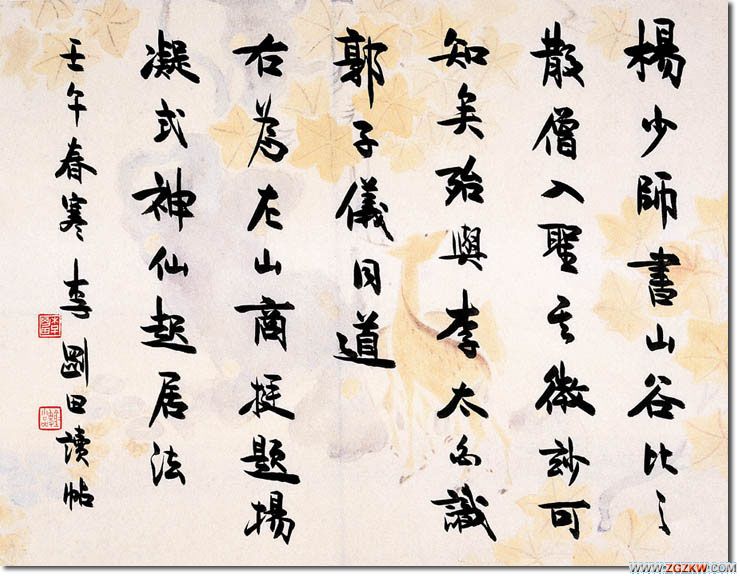 楊少師書山谷比之
散僧入聖其微玅可
知矣殆與李太白識
郭子儀同道
右為左山商挺題楊
凝式神仙起居法
壬午春寒李剛田讀帖
WWW.ZGZKW.COM